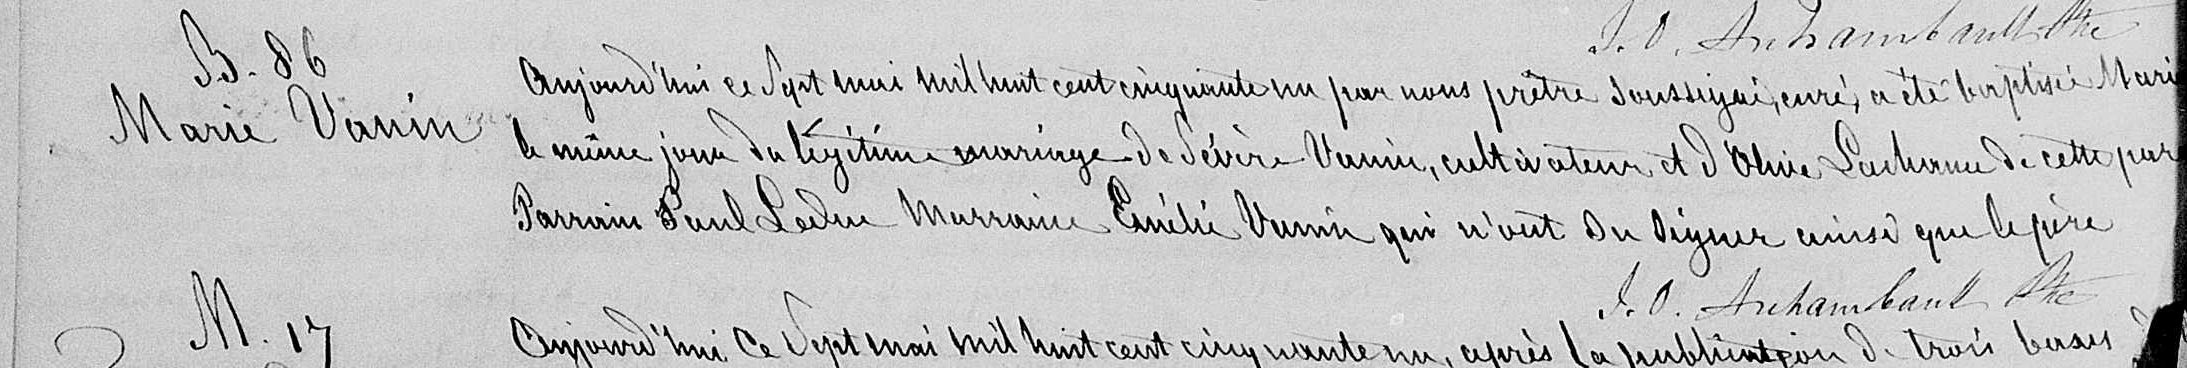 J. O. Archambault Ptre
B. 86
Marie Vanin
Aujourd'hui ce Sept mai mil huit cent cinquante un par nous prêtre soussigné, curé, a été baptisée Mari
le même jour du légitime mariage de Sévère Vanin, cultivateur et d'Olive Lachance de cette par
Parrain Paul Leduc Marraine Emélie Vanin qui n'ont su signer ainsi que le père
J. O. Archambault Ptre
M. 17
Aujourd'hui Ce Sept mai mil huit cent cinquante un, après la publication de trois bans